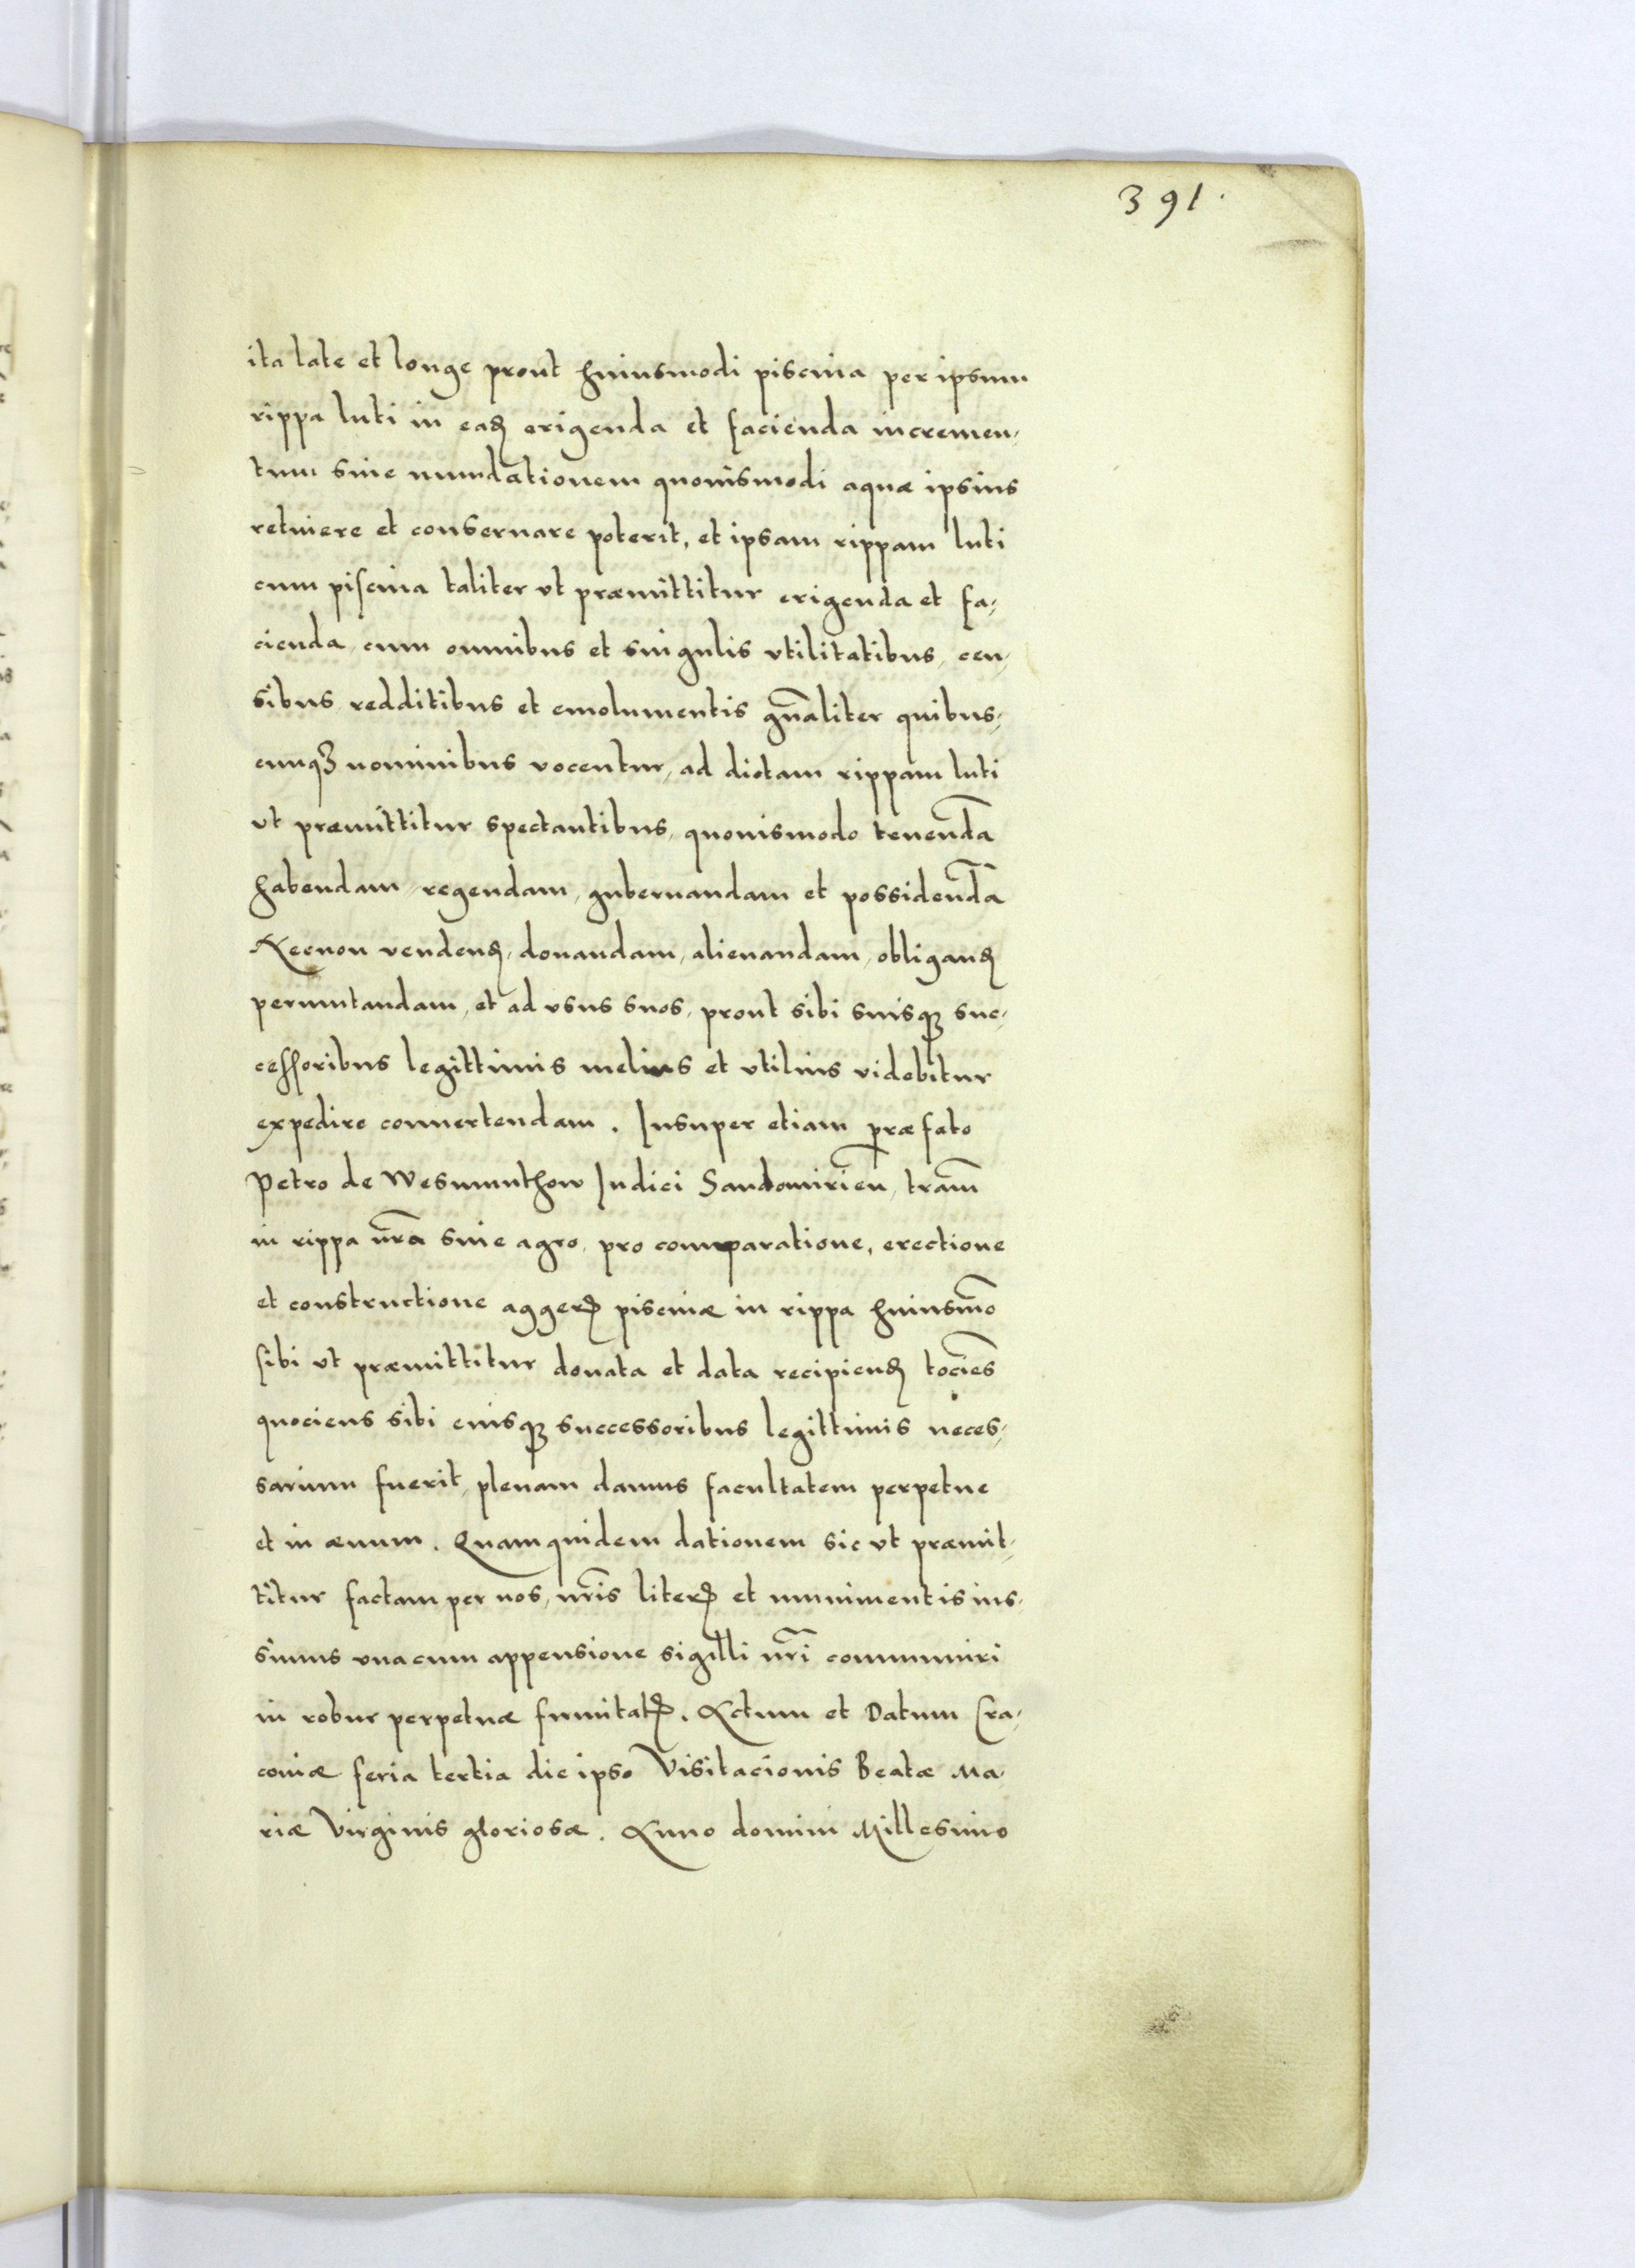 391.
ita late et longe prout huiusmodi piscina per ipsum
rippa luti in eađ erigenda et facienda incremen-
tum siue inundationem quouismodi aquæ ipsius
retinere et conseruare poterit, et ipsam rippam luti
cum piscina taliter vt præmittitur erigenda et fa-
cienda, cum omnibus et singulis vtilitatibus, cen-
sibus redditibus et emolumentis gn̄aliter quibus-
cunqꝫ nominibus vocentur, ad dictam rippam luti
vt præmittitur spectantibus, quouismodo tenend̄a
habendam, regendam, gubernandam et possidend̄a
Necnon vendenđ, donandam, alienandam, obliganđ
permutandam, et ad vsus suos, prout sibi suisqꝫ suc-
cessoribus legittimis melius et vtilius videbitur
expedire conuertendam. Insuper etiam præfato
Petro de Wesmunthow Iudici Sandomirien̄, tr̄am
in rippa nr̄a siue agro, pro comparatione, erectione
et constructione aggerꝭ piscinæ in rippa huiusm̄o
sibi vt præmittitur donata et data recipienđ tocīes
quociens sibi eiusqꝫ successoribus legittimis neces-
sarium fuerit, plenam damus facultatem perpetue
et in æuum. Quamquidem dationem sic vt præmit-
titur factam per nos, nr̄is literꝭ et munimentis ius-
simus vnacum appensione sigilli nr̄i communiri
in robur perpetuæ firmitatꝭ. Actum et Datum Cra-
couiæ feria tertia die ipso Visitacionis Beatæ Ma-
riæ Virginis gloriosæ. Anno domini Millesimo